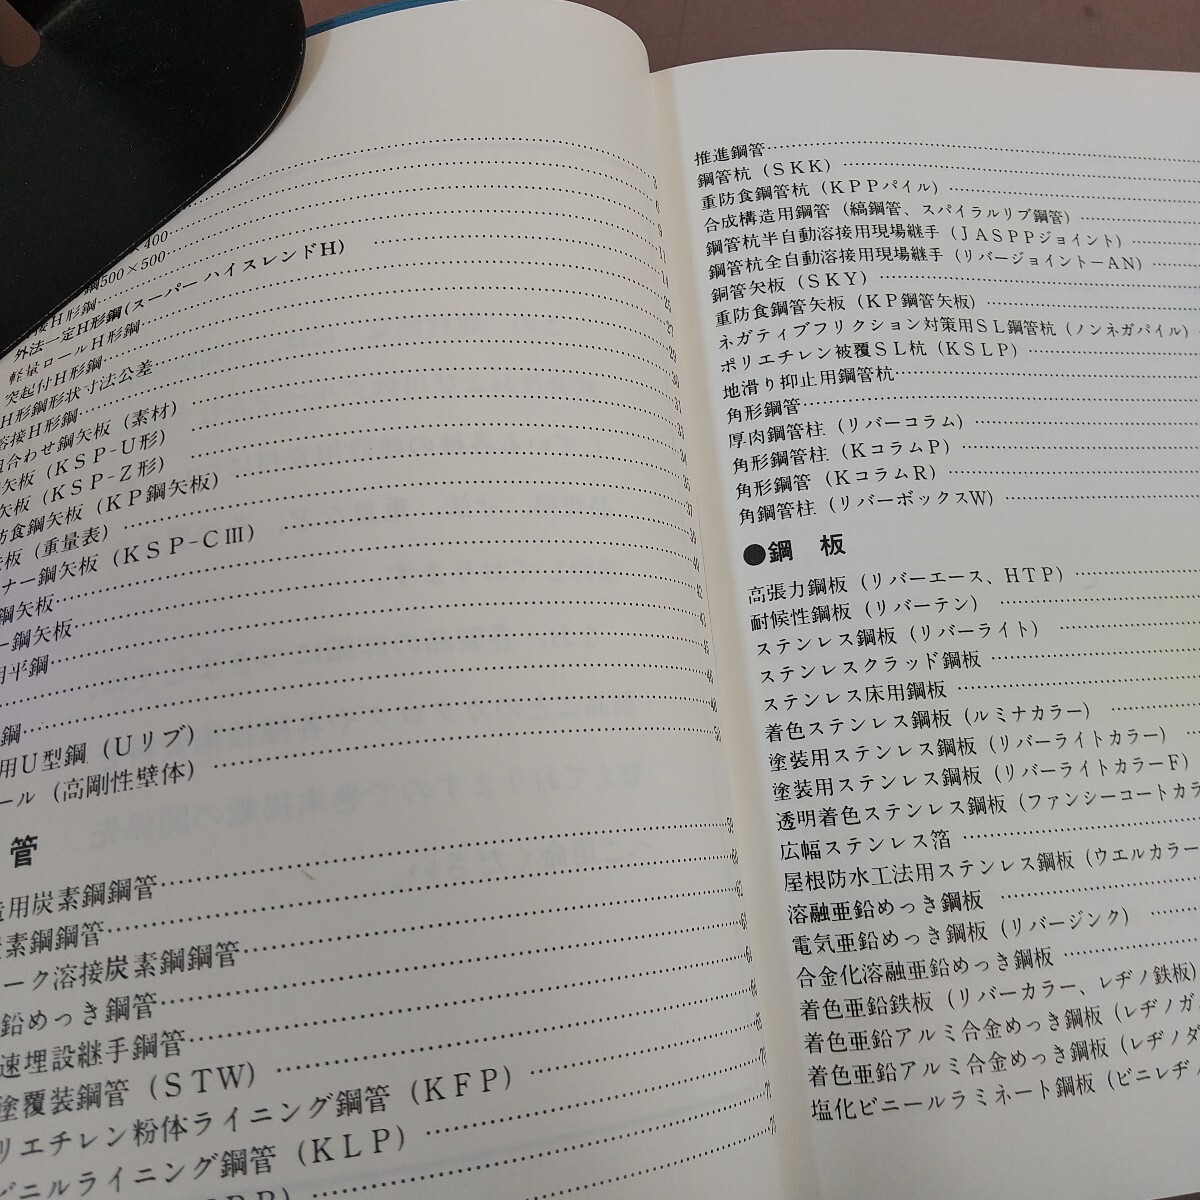 400
鋼500×500
接H形鋼
外法一定H形鋼(スーパー ハイスレンドH)
軽量ロールH形鋼
突起付H形鋼
H形鋼形状寸法公差
溶接H形鋼
組合わせ鋼矢板(素材)
矢板(KSP-U形)
矢板(KSP-Z形)
防食鋼矢板(KP鋼矢板)
板(重量表)
ナー鋼矢板(KSP-CⅢ)
鋼矢板
ー鋼矢板
用平鋼
鋼
用U型鋼(Uリブ)
ール(高剛性壁体)
管
造用炭素鋼鋼管
炭素鋼鋼管
ーク溶接炭素鋼鋼管
鉛めっき鋼管
速埋設継手鋼管
塗覆装鋼管(STW)
リエチレン粉体ライニング鋼管(KFP)
ビニルライニング鋼管(KLP)
推進鋼管
鋼管杭(SKK)
重防食鋼管杭(KPPパイル)
合成構造用鋼管(縞鋼管、スパイラルリブ鋼管)
鋼管杭半自動溶接用現場継手(JASPPジョイント)
鋼管杭全自動溶接用現場継手(リバージョイント-AN)
鋼管矢板(SKY)
重防食鋼管矢板(KP鋼管矢板)
ネガティブフリクション対策用SL鋼管杭(ノンネガパイル)
ポリエチレン被覆SL杭(KSLP)
地滑り抑止用鋼管杭
角形鋼管
厚肉鋼管柱(リバーコラム)
角形鋼管柱(KコラムP)
角形鋼管(KコラムR)
角鋼管柱(リバーボックスW)
●鋼 板
高張力鋼板(リバーエース、HTP)
耐候性鋼板(リバーテン)
ステンレス鋼板(リバーライト)
ステンレスクラッド鋼板
ステンレス床用鋼板
着色ステンレス鋼板(ルミナカラー)
塗装用ステンレス鋼板(リバーライトカラー)
塗装用ステンレス鋼板(リバーライトカラーF)
透明着色ステンレス鋼板(ファンシーコートカラ
広幅ステンレス箔
屋根防水工法用ステンレス鋼板(ウエルカラー
溶融亜鉛めっき鋼板
電気亜鉛めっき鋼板(リバージンク)
合金化溶融亜鉛めっき鋼板
着色亜鉛鉄板(リバーカラー、レヂノ鉄板)
着色亜鉛アルミ合金めっき鋼板(レヂノガ
着色亜鉛アルミ合金めっき鋼板(レヂノダ
塩化ビニールラミネート鋼板(ビニレヂ